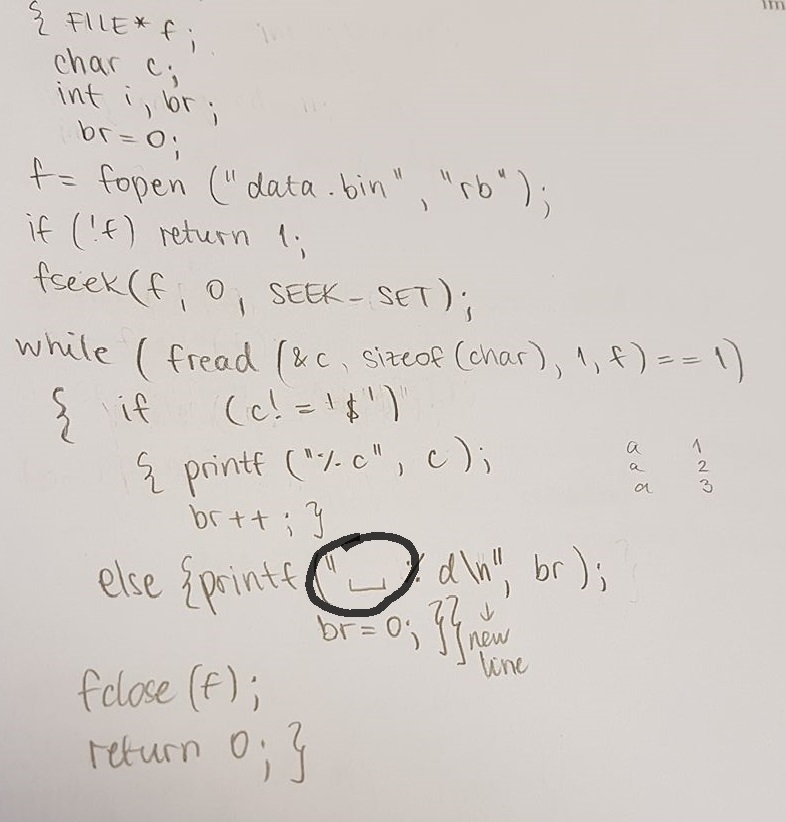 { FILE* f;
char c;
int i, br;
br = 0;
f = fopen ("data.bin", "rb");
if (!f) return 1;
fseek(f, 0, SEEK_SET);
while ( fread (&c, sizeof(char), 1, f) == 1)
{ if (c! = '$')
{ printf ("%c", c);
br++; }
a 1
a 2
a 3
else {printf ("␣%d\n", br);
br = 0; }}
↓
new
line
fclose (f);
return 0; }